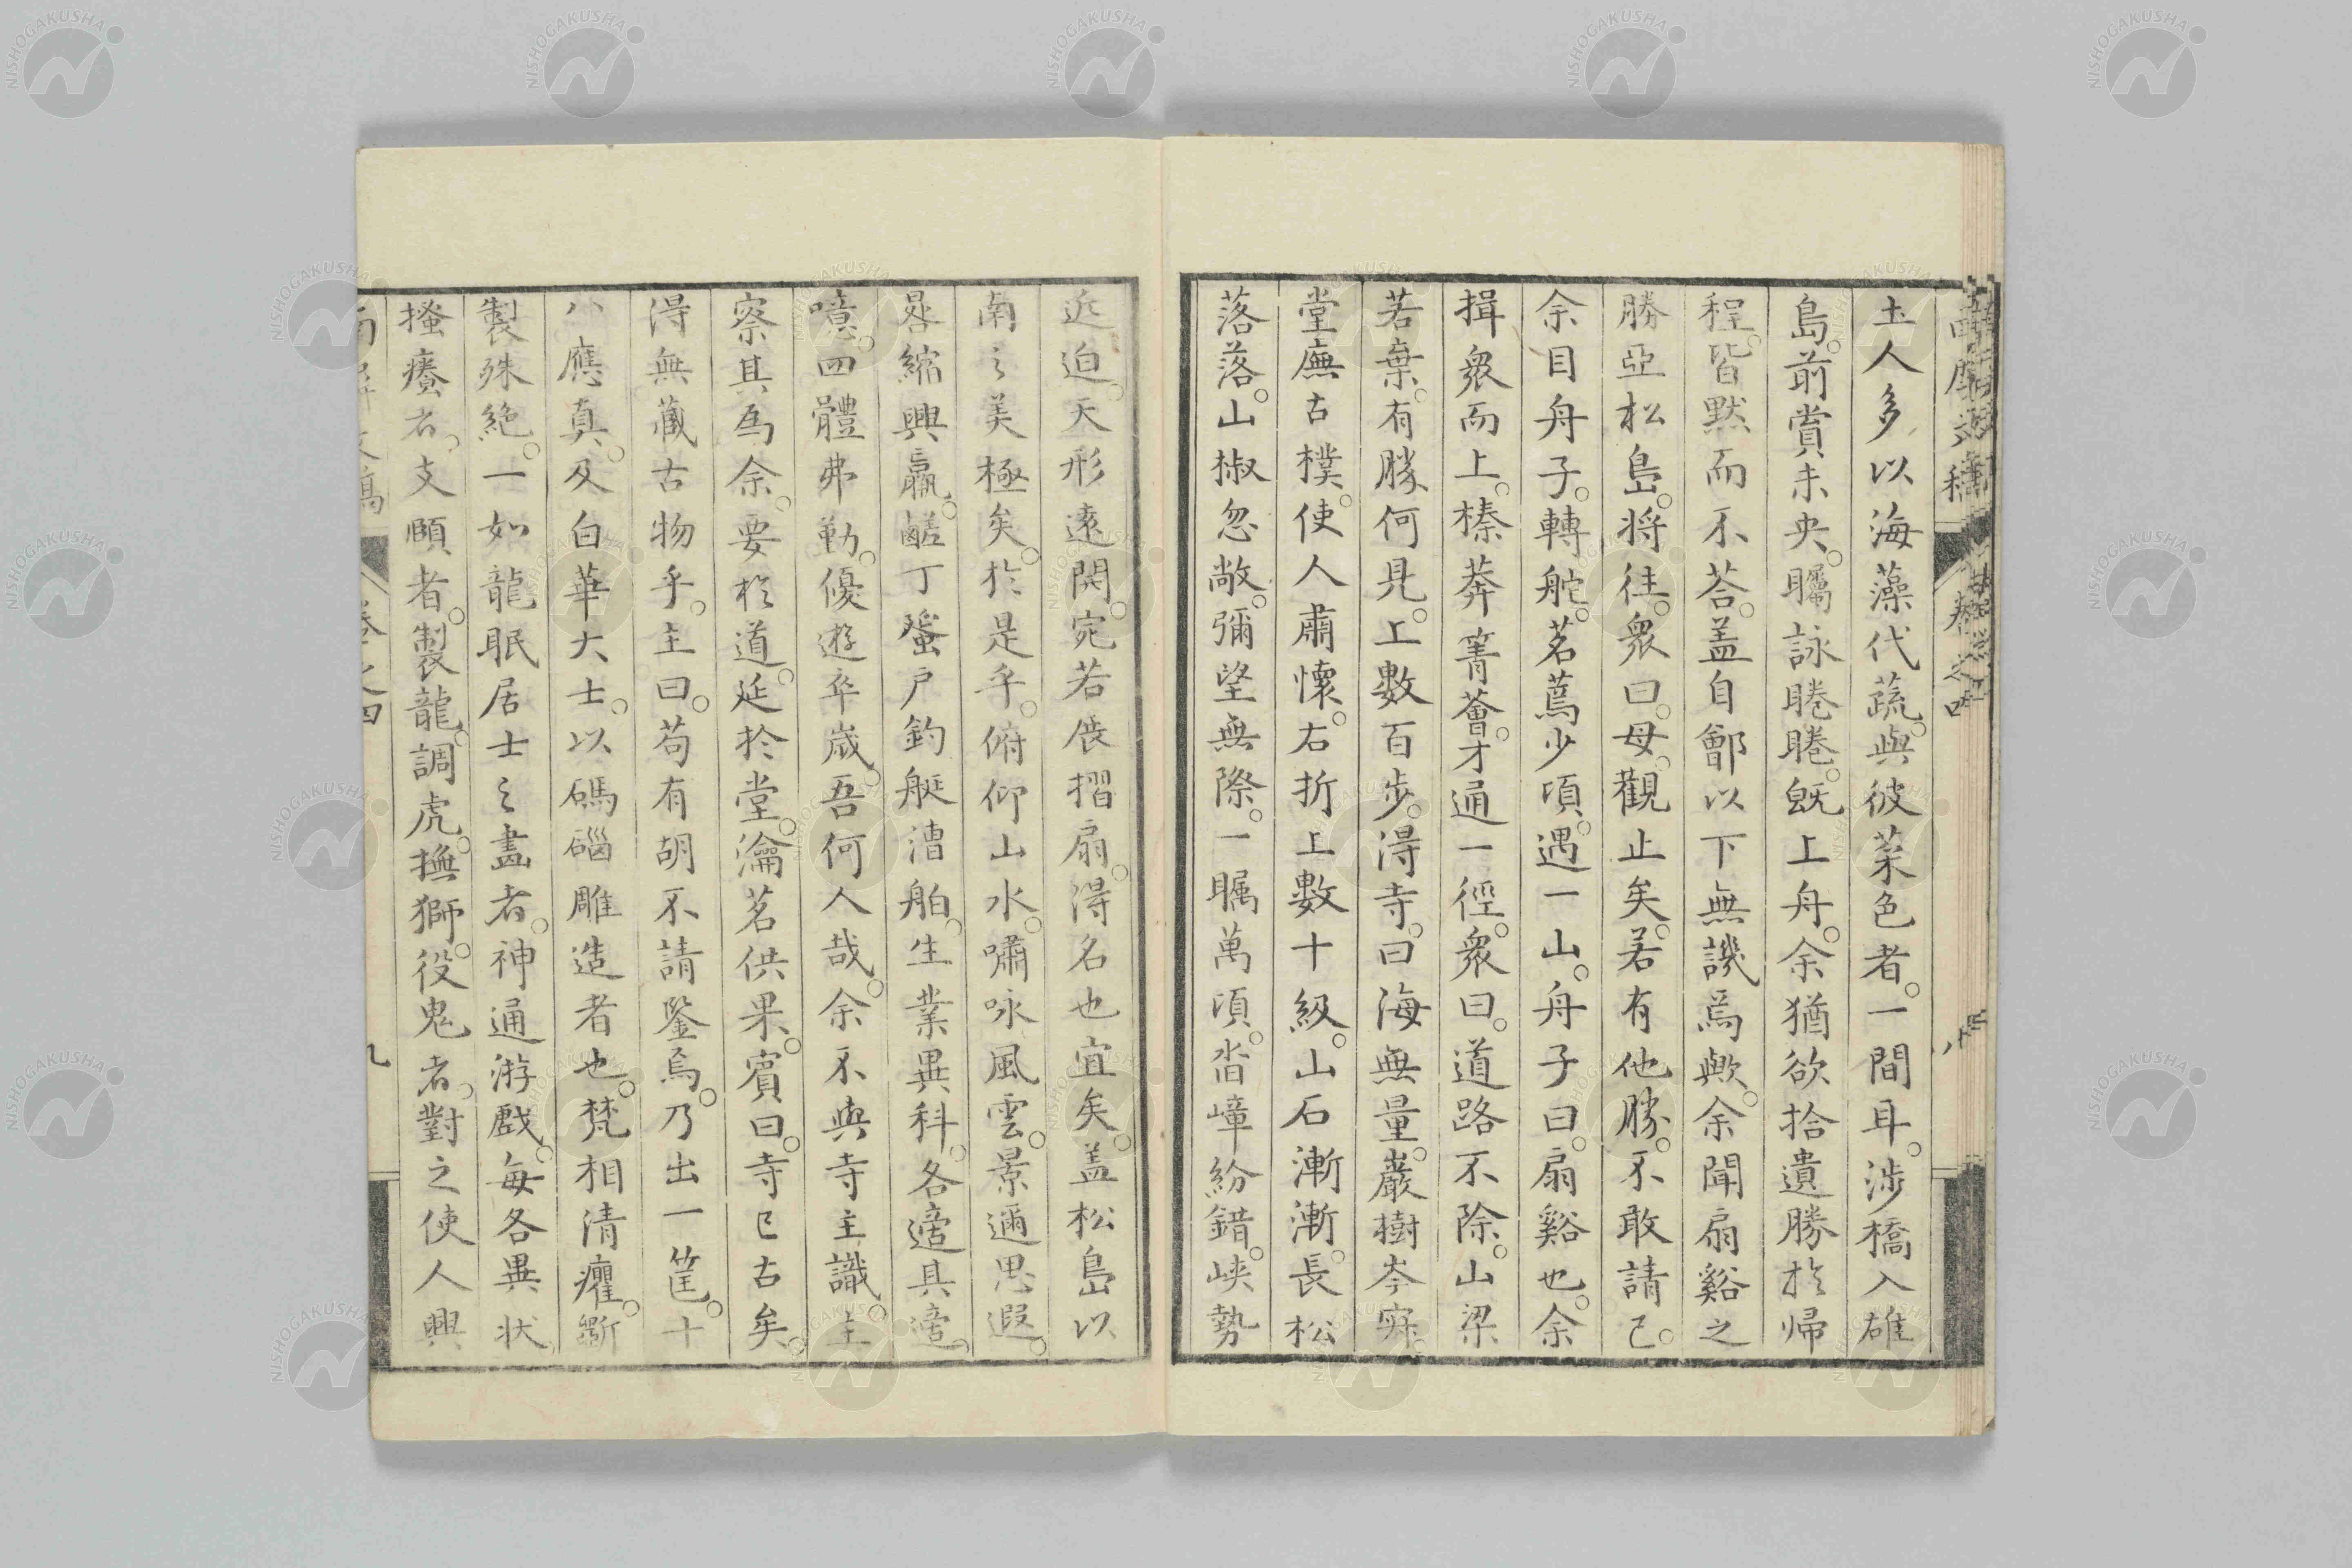 土人多以海藻代蔬。與彼菜色者。一間耳。涉橋入雄
島。前賞未央。矚詠睠睠。既上舟。余猶欲拾遺勝於帰
程。皆默而不荅。盖自鄶以下無譏焉歟。余聞扇谿之
勝亞松島。将往。衆曰。毋。觀止矣。若有他勝。不敢請已。
余目舟子。轉舵。茗蔫少頃。遇一山。舟子曰。扇谿也。余
揖衆而上。榛莽箐薈。才通一徑。衆曰。道路不除。山梁
若棄。有勝何見。上數百步。得寺。曰海無量。巌樹岑寂。
堂廡古樸。使人肅懷。右折上數十級。山石漸漸。長松
落落。山椒忽敞。彌望無際。一矚萬頃。沓嶂紛錯。峡勢
近迫。天形遠開。宛若展摺扇。得名也宜矣。盖松島以
南之美極矣。於是乎。俯仰山水。嘯咏風雲。景邇思遐。
晷縮興贏。鹺丁蜑戶釣艇漕舶。生業異科。各適其適。
噫。四體弗勤。優遊卒歳。吾何人哉。余不與寺主識。主
察其為余。要於道。延於堂。瀹茗供果。賓曰。寺已古矣。
得無藏古物乎。主曰。苟有胡不請鑒焉。乃出一筐。十
八應真。及白華大士。以碼碯雕造者也。梵相清癯。斲
製殊絶。一如龍眠居士之畫者。神通游戲。每各異状。
搔癢者。支頤者。製龍。調虎。撫獅。役鬼者。對之使人興
卷之四
九